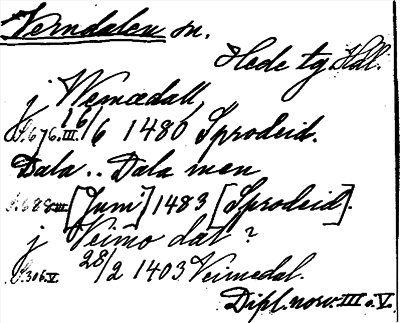 Vemdalen sn.
Hede tg. Hdl.
j Wemædall,
S. 676. III. 16/6 1480 Sprodeid.
Dala.. Dala men
S. 688 III [Juni] 1483 [Sprodeid].
j Veimo dal ?
S. 306. V. 28/2 1403 Veimedal.
Dipl. norv. III o. V.